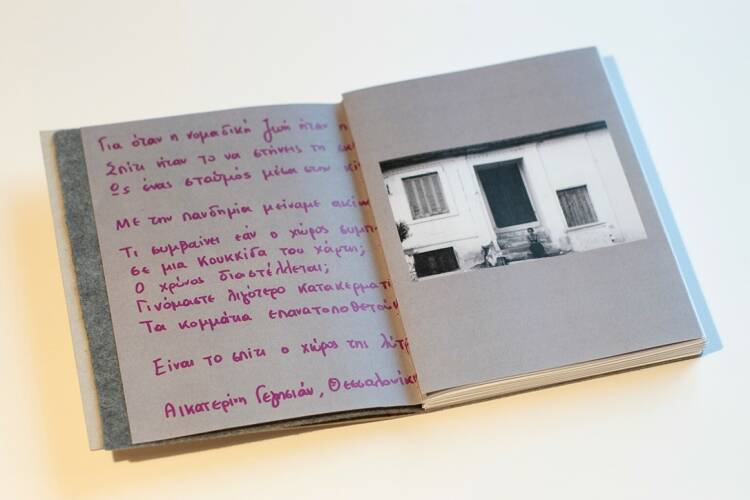 Για όταν η νομαδική ζωή ήταν η
Σπίτι ήταν το να στήνεις τη
Ως ένας σταθμός μέσα στην
Με την πανδημία μείναμε
Τι συμβαίνει εάν ο χώρος
σε μια κουκκίδα του χάρτη;
Ο χρόνος διαστέλλεται;
Γινόμαστε λιγότερο
Τα κομμάτια
Είναι το σπίτι ο χώρος της
Αικατερίνη Γεγησιάν, Θεσσαλονίκη